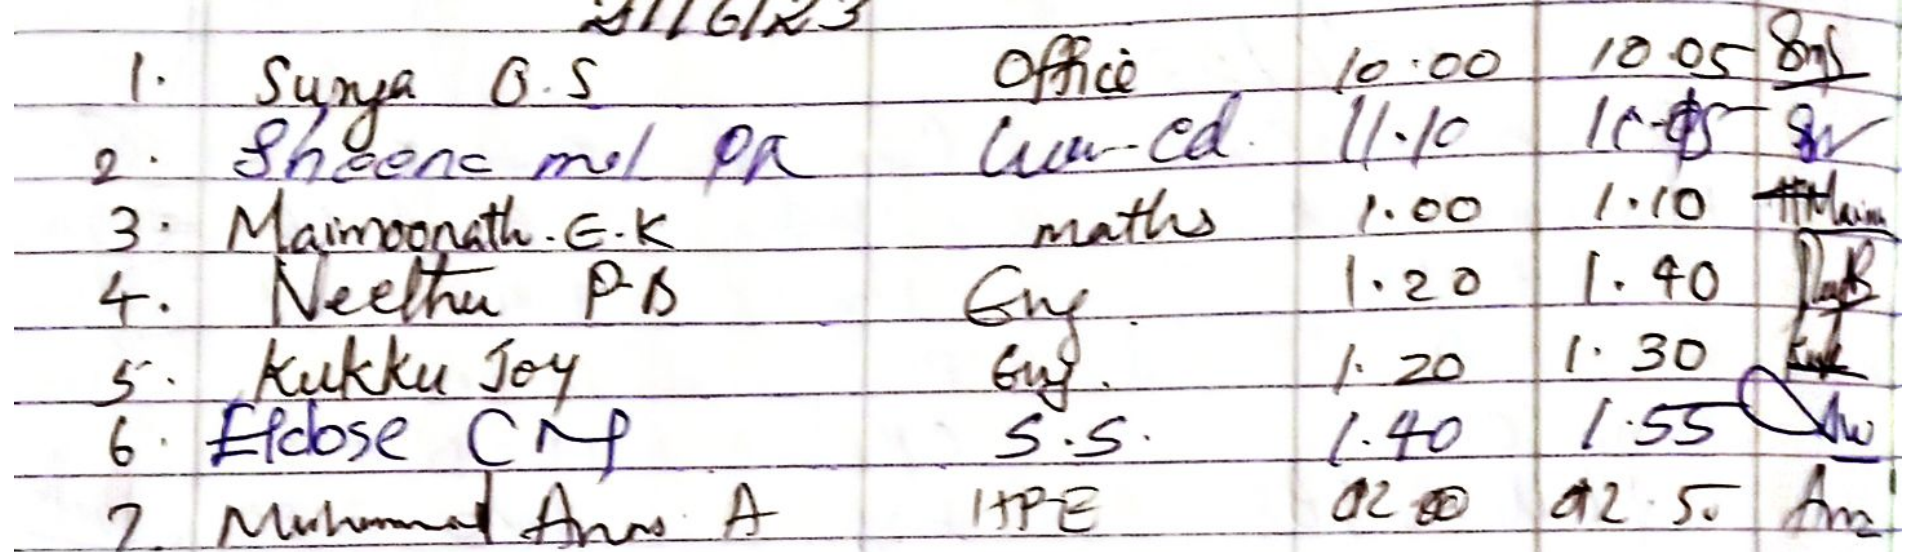 21/6/23
1. Surya O.S Office 10.00 10.05
2. Sheena mol PA 11.10
3. Maimoonath. E.K maths 1.00 1.10
4. Neethu P.B Eng. 1.20 1.40
5. Kukku Joy Eng. 1.20 1.30
6. Eldose C M S.S. 1.40 1.55
7. Muhammad Anas A HPE 02 2.50